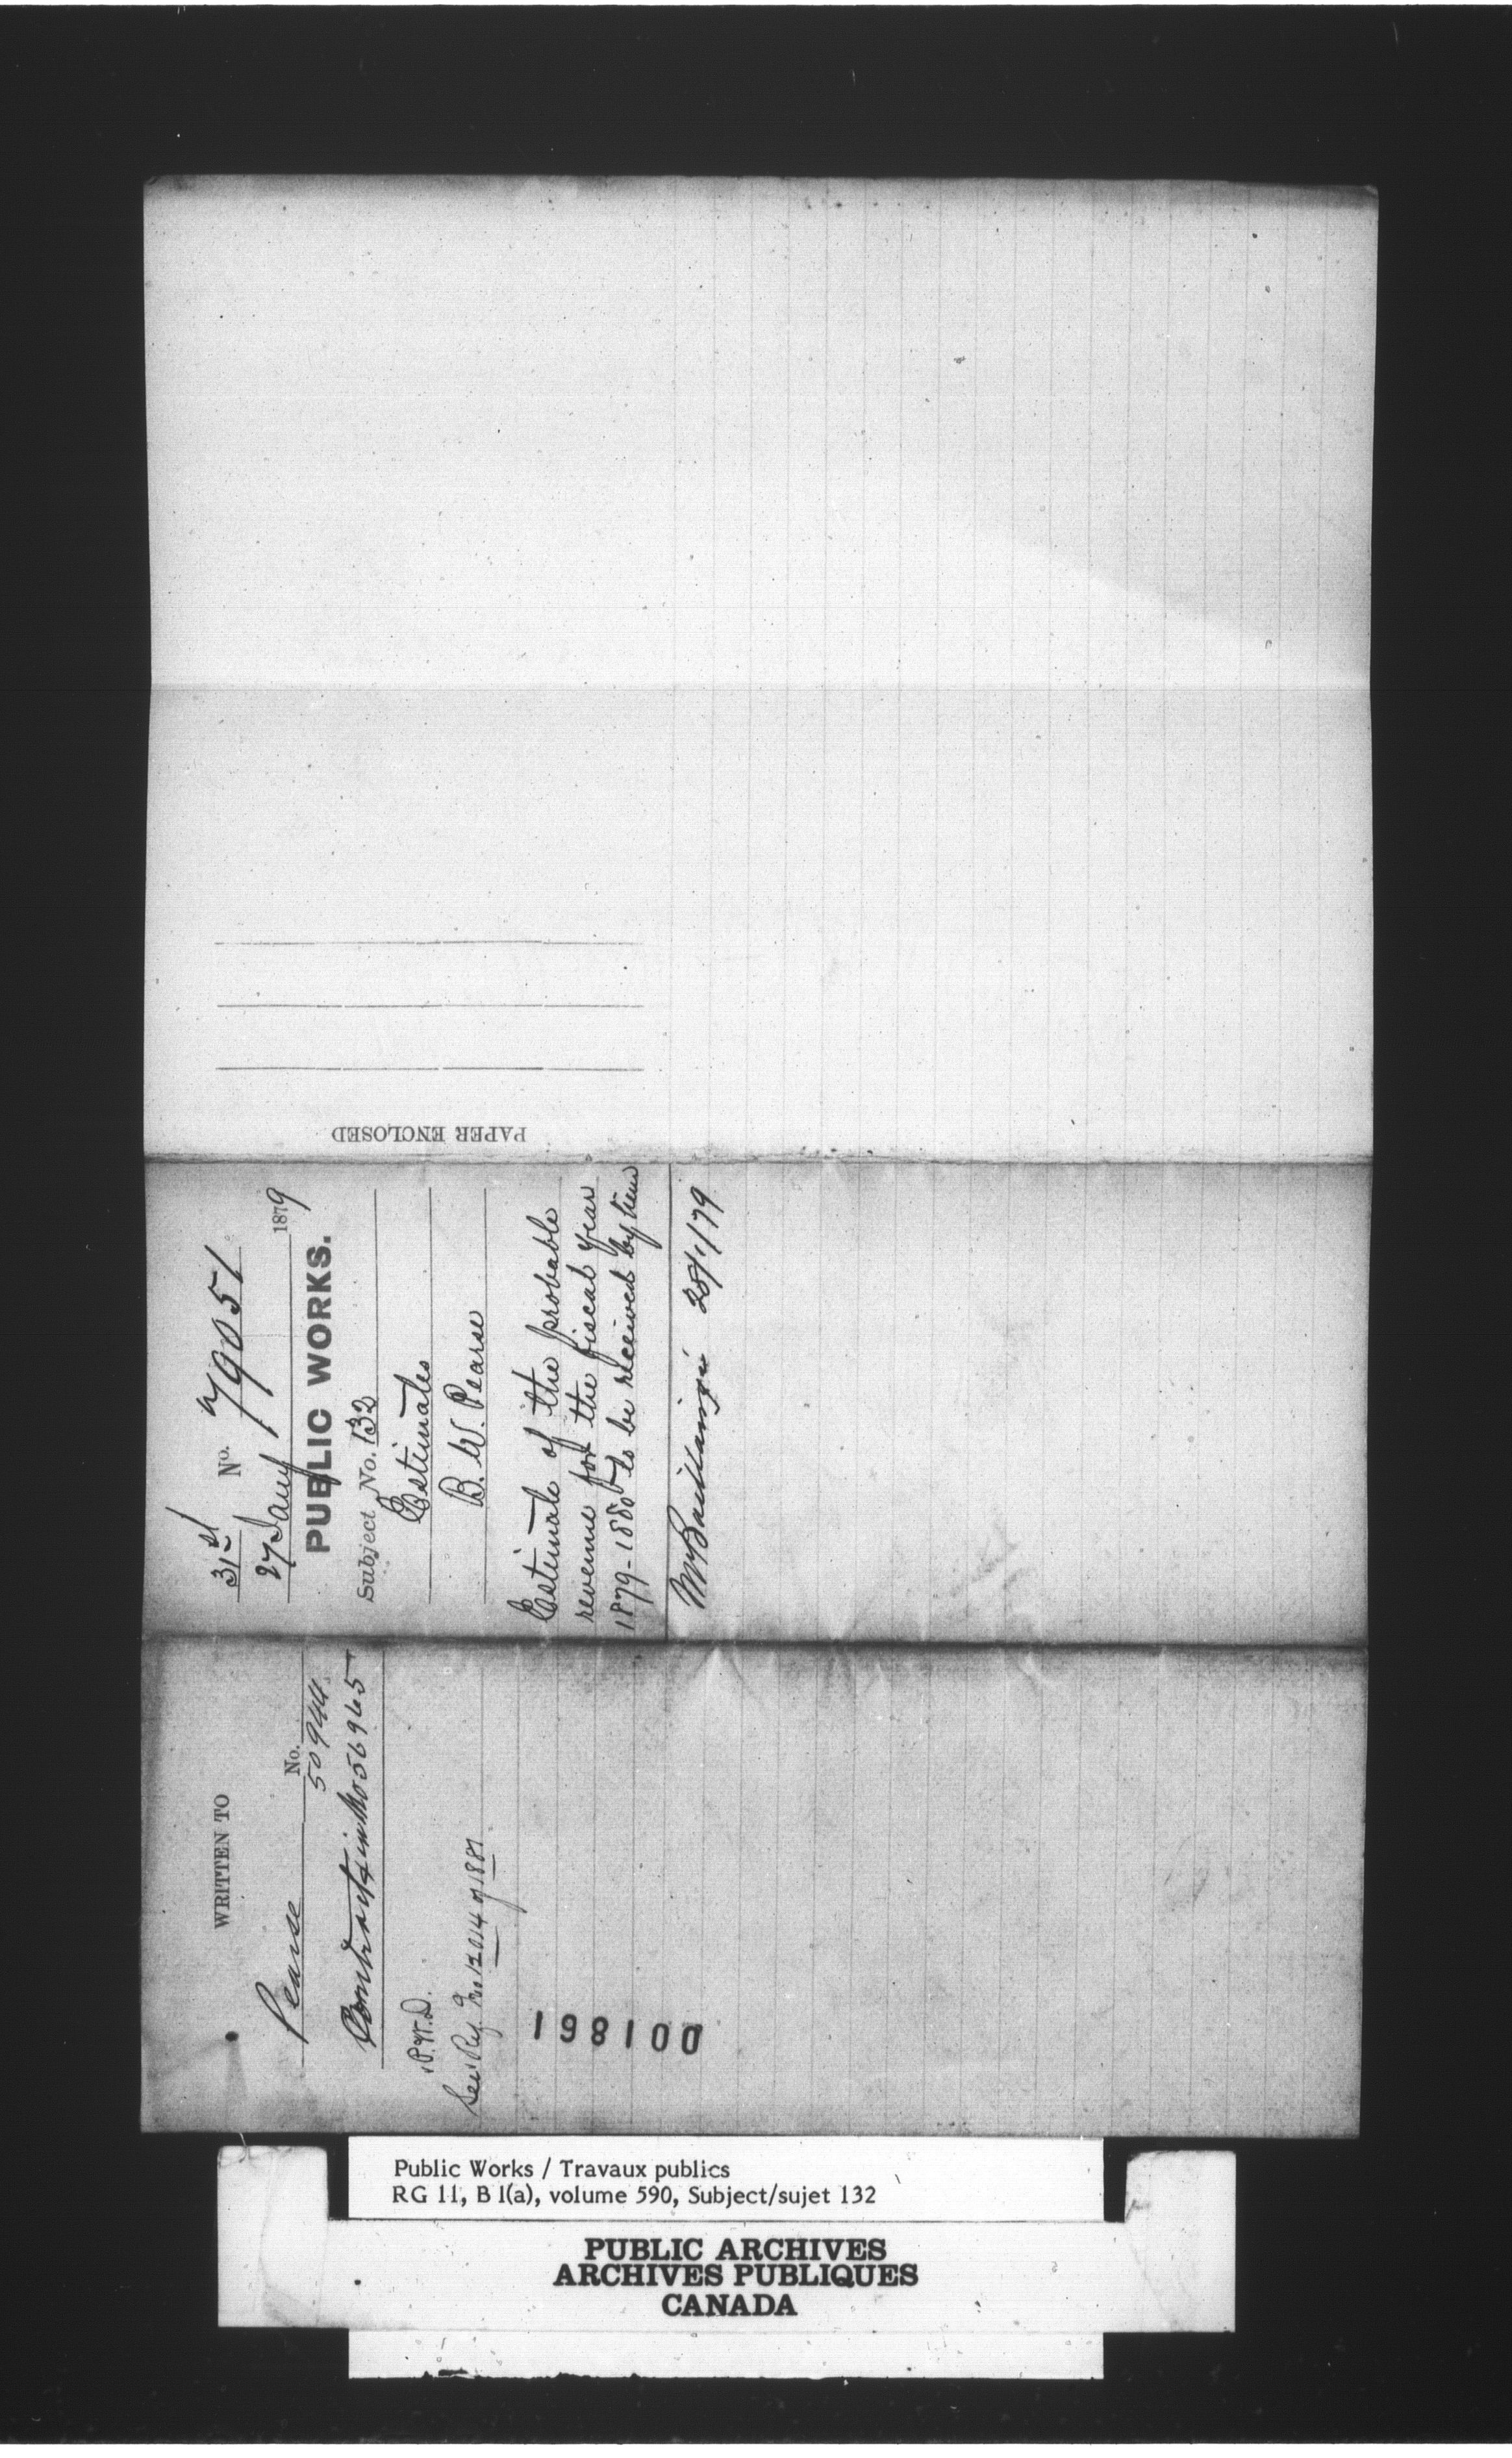 31st No. 79051
27 Jany 1879
PUBLIC WORKS.
Subject No. 132
Estimates
B. W. Pearse
Estimate of the probable
revenue for the fiscal year
1879-1880 to be received by him
28/1/79
PAPER ENCLOSED
WRITTEN TO
No.
Pearse 50944
No 56965
P.W.D.
See Ref. No 12014 of 1881
001861
Public Works / Travaux publics
RG 11, B 1(a), volume 590, Subject/sujet 132
PUBLIC ARCHIVES
ARCHIVES PUBLIQUES
CANADA